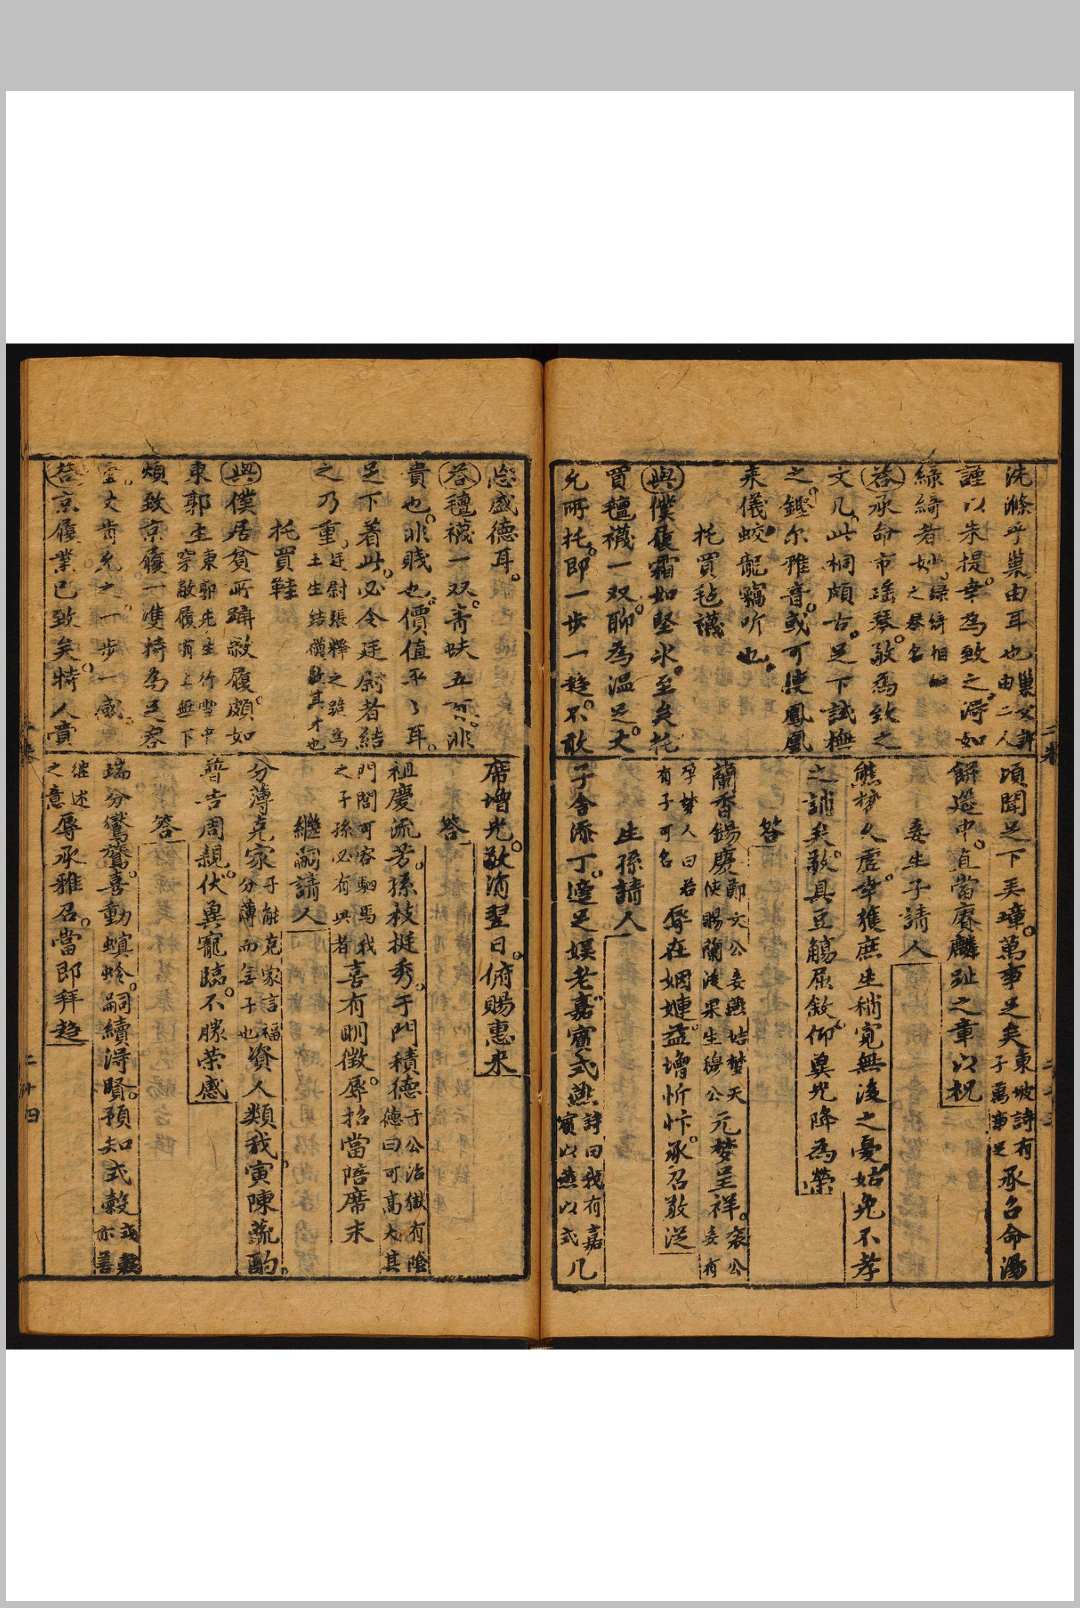 洗滌乎巢由耳也巢父許由二人
謹以朱提幸為致之得如
綠綺者妙綠綺相如之琴名
答承命市瑤琴敬為致之
文几此桐頗古足下試極
之鏗尔雅音或可使鳳凰
来儀蛟龍竊听也
托買毡襪
與僕履霜如堅氷至矣托
買氊襪一双聊為温足大
允所托即一步一趨不敢
頃聞足下弄璋萬事足矣東坡詩有子萬事足承召命湯
餅筵中直當賡麟趾之章以祝
妾生子請人
熊夢久虗幸獲庶生稍寛無後之憂姑免不孝
之誚矣敬具豆觴屈敘仰兾光降為榮
答
蘭香錫慶鄭文公妾燕姞夢天使賜蘭後果生穆公元夢呈祥袁公妾有
孕夢人曰若有子可名辱在姻婣益增忻忭承召敬从
生孫請人
子舍添丁適足娱老嘉賓式燕詩曰我有嘉賓以燕以式几
忘盛德耳
答氊襪一双青蚨五百非
貴也非賤也價值平々耳
足下着此必令廷尉者結
之乃重廷尉張釋之跪為王生結襪此其才也
托買鞋
與僕居貧所躡敝履頗如
東郭生東郭先生行雪中穿敝履有上無下
煩致京履一凖持為足容
荅京履業已致矣特人賣
席增光敬消翌日俯賜惠来
答
祖慶流芳孫枝挺秀于門積德于公治獄有陰德曰可髙大其
門閭可容駟馬我之子孫必有興者喜有明徵辱招當陪席末
繼嗣請人
分薄克家子能克家言福分薄而無子也資人類我寅陳蔬酌
普告周親伏兾寵臨不勝荣感
答
瑞分鸑鷟喜動螟蛉嗣續淂賢預知式穀
继述之意辱承雅召當即拜趨
二十四